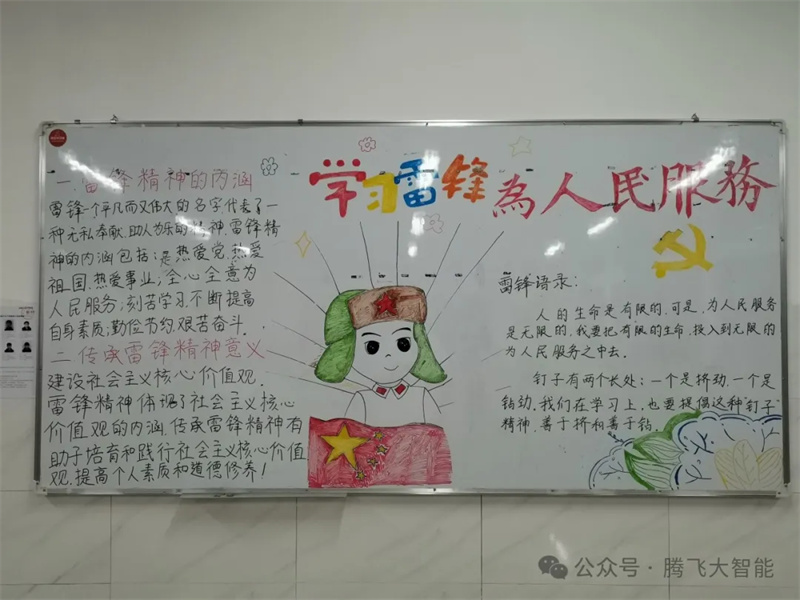 学习雷锋 為人民服務
一 雷锋精神的内涵
雷锋一个平凡而又伟大的名字代表了一
种无私奉献、助人为乐的精神.雷锋精
神的内涵包括:是热爱党,热爱
祖国,热爱事业;全心全意为
人民服务;刻苦学习,不断提高
自身素质;勤俭节约,艰苦奋斗.
二 传承雷锋精神意义
建设社会主义核心价值观.
雷锋精神体现了社会主义核心
价值观的内涵,传承雷锋精神有
助于培育和践行社会主义核心价值
观,提高个人素质和道德修养!
雷锋语录:
人的生命是有限的.可是,为人民服务
是无限的,我要把有限的生命,投入到无限的
为人民服务之中去.
钉子有两个长处:一个是挤劲,一个是
钻劲,我们在学习上,也要提倡这种"钉子"
精神,善于挤和善于钻.
公众号·腾飞大智能